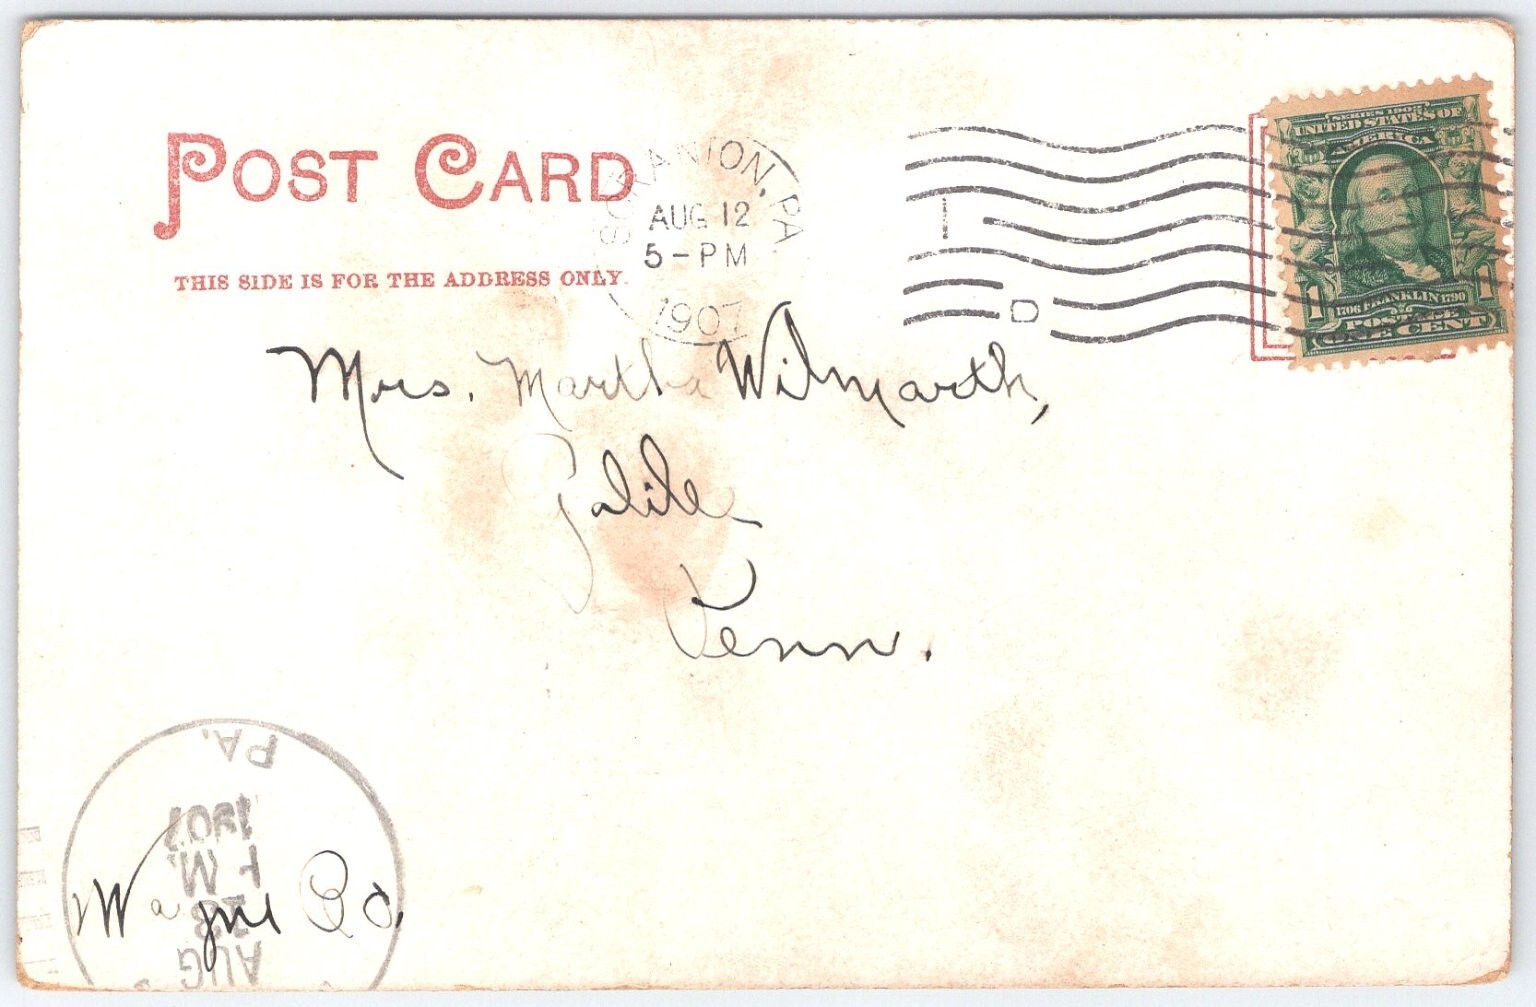 POST CARD
THIS SIDE IS FOR THE ADDRESS ONLY.
SCRANTON, PA
AUG 12
5-PM
1907
1
D
SERIES 1902
UNITED STATES OF
AMERICA
1706 FRANKLIN 1790
POSTAGE
1 ONE CENT 1
Mrs. Martha Wilmarth,
Galilee
Penn.
Wayne Co.
PA.
1907
M.
AUG